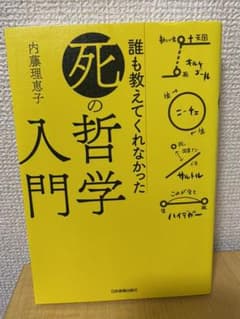 誰も教えてくれなかった
死の哲学
入門
内藤理恵子
天国
キルケ
ゴール
ニーチェ
サルトル
この世
ハイデガー
日本実業出版社